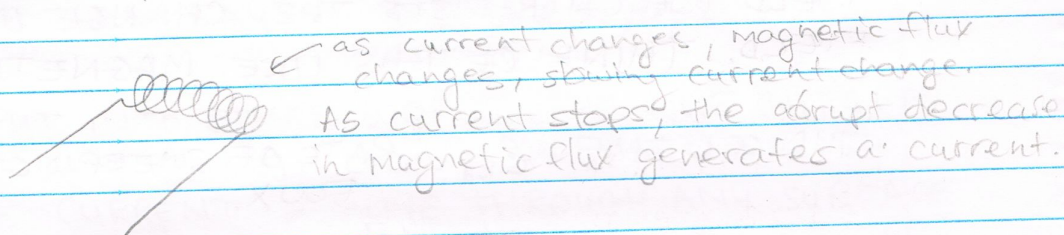 as current changes, magnetic flux
changes, slowing current change.
As current stops, the abrupt decrease
in magnetic flux generates a current.